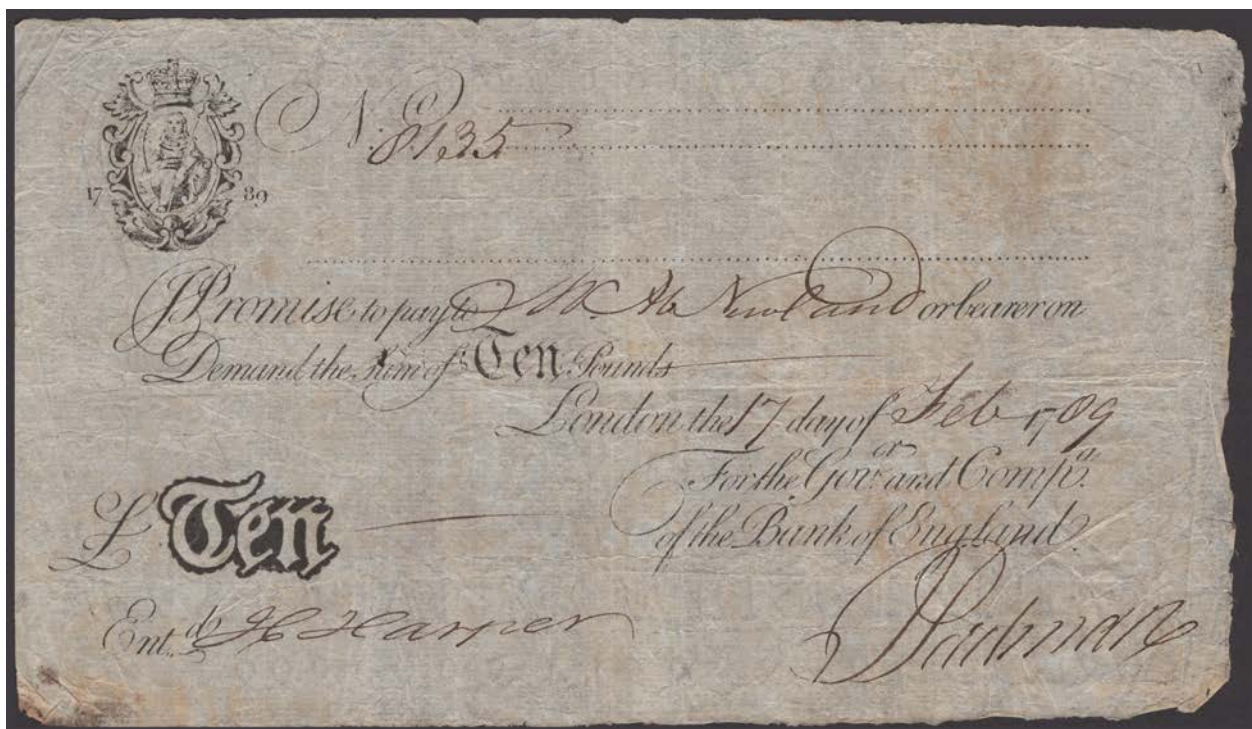 No
8135
17 89
I Promise to pay to Mr. Ab. Newland or bearer on
Demand the Sum of Ten Pounds
London the 17 day of Feb 1789
For the Govr. and Compa.
of the Bank of England.
£ Ten
Entd. H Harper